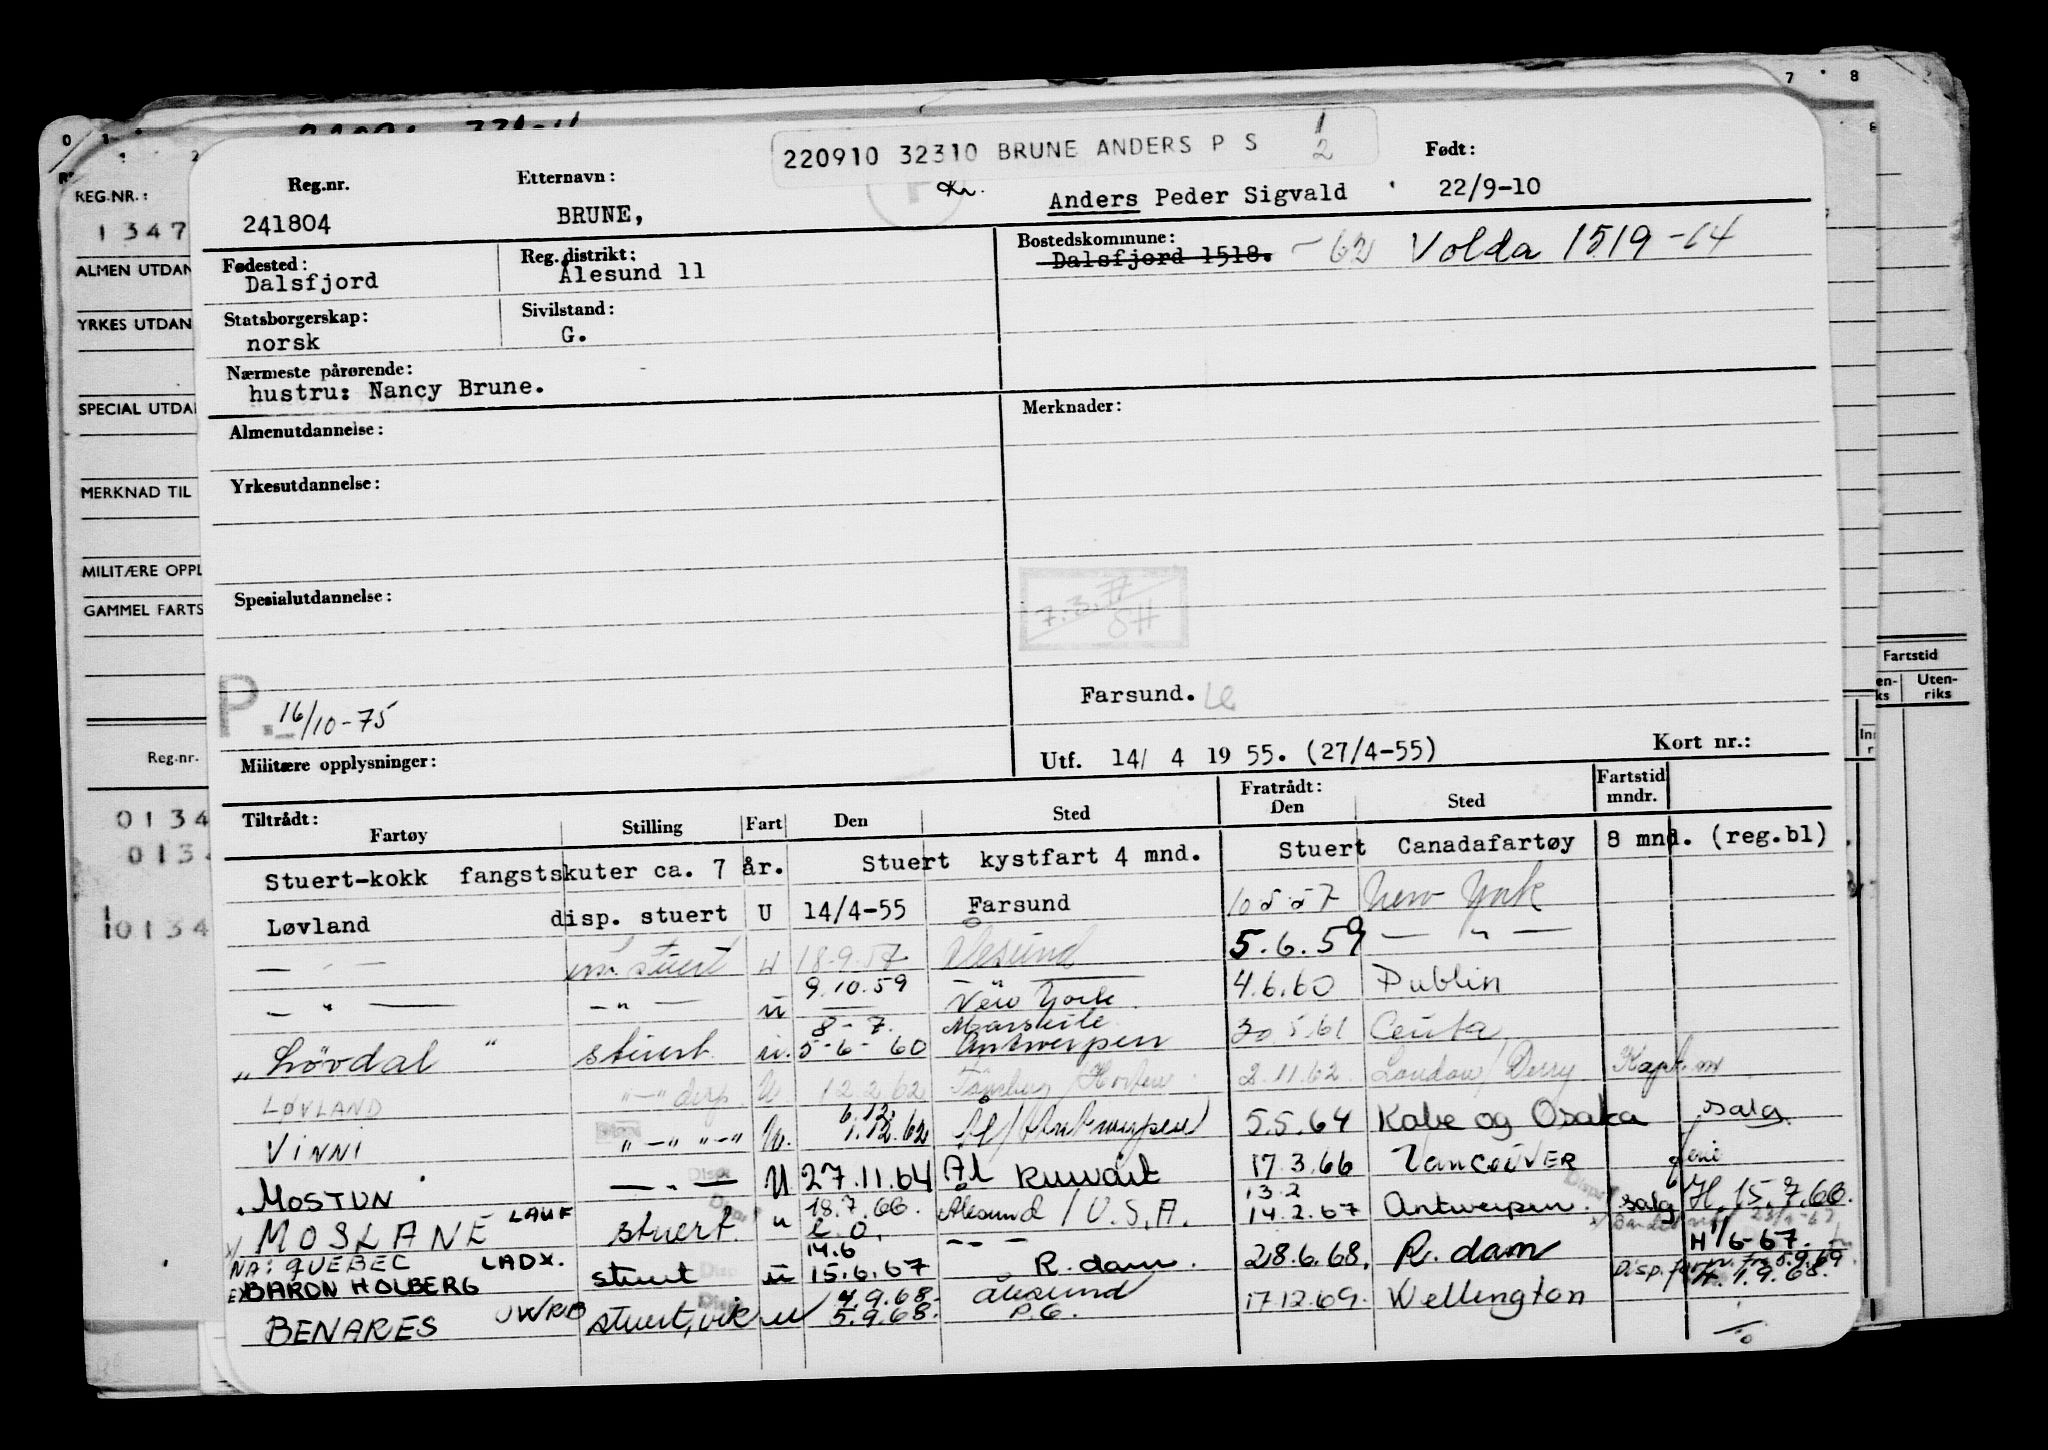 220910 32310 BRUNE ANDERS P S 1/2
Reg.nr. Etternavn: Født:
241804 BRUNE, Kr. Anders Peder Sigvald 22/9-10
Fødested: Reg.distrikt: Bostedskommune:
Dalsfjord Ålesund 11 Dalsfjord 1518. -62 Volda 1519-64
Statsborgerskap: Sivilstand:
norsk G.
Nærmeste pårørende:
hustru: Nancy Brune.
Almenutdannelse: Merknader:
Yrkesutdannelse:
Spesialutdannelse:
P. 16/10-75 Farsund.
Militære opplysninger: Utf. 14/ 4 19 55. (27/4-55) Kort nr.:
Tiltrådt: Fratrådt: Fartstid mndr.
Fartøy Stilling Fart Den Sted Den Sted
Stuert-kokk fangstskuter ca. 7 år. Stuert kystfart 4 mnd. Stuert Canadafartøy 8 mnd. (reg.bl)
Løvland disp. stuert U 14/4-55 Farsund 10 5 57 New York
— " — stuert U 18.9.57 Ålesund 5.6.59 — " —
— " — — " — U 9.10.59 New York 4.6.60 Dublin
8-7. Marseile
" Lövdal " stuert U. 5-6-60 Antwerpen 30 5 61 Ceuta
LØVLAND " — " disp. U. 12.2.62 Tønsberg / Horten 2.11.62 London / Derry
6.12.
VINNI " — " " — " U. 1.12.62 Ål / Antwerpen 5.5.64 Kobe og Osaka salg
MOSTUN — " — U 27.11.64 Ål Kuwait 17.3.66 VANCOUVER ferie
18.7.66. 13.2
MOSLANE LAUF stuert. u Ålesund / U.S.A. 14.2.67 Antwerpen. salg H. 15.7.66.
NA: QUEBEC LADX. 14.6 — " — H 1/6-67.
EX BARON HOLBERG stuert u 15.6.67 R. dam. 28.6.68. R. dam
4.9.68. Ålesund H. 1.9.68.
BENARES stuert, vik u 5.9.68. P.G. 17.12.69. Wellington
REG.NR.:
1 3 4 7
ALMEN UTDAN
YRKES UTDAN
SPECIAL UTDA
MERKNAD TIL
MILITÆRE OPPL
GAMMEL FARTS
Reg.nr.
0 1 3 4
0 1 3
0 1 3 4
7 8
Fartstid
Uten-riks